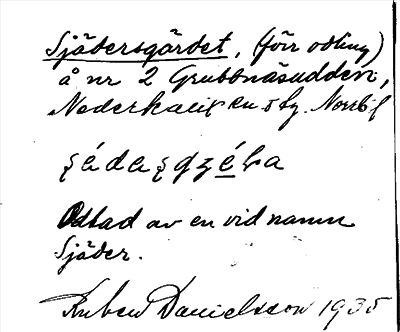 Sjädersgärdet, (förr odling)
å nr 2 Grubbnäsudden,
Nederkalix en o by. Norrb. l
Odlad av en vid namn
Sjäder.
Ruben Danielsson 1935